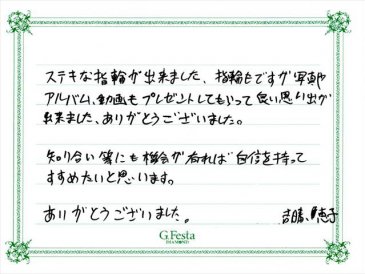 ステキな指輪が出来ました、指輪もですが写真や
アルバム、動画もプレゼントしてもらって良い思い出が
出来ました、ありがとうございました。
知り合い等にも機会が有れば自信を持って
すすめたいと思います。
ありがとうございました。
恵子
G.Festa
DIAMOND